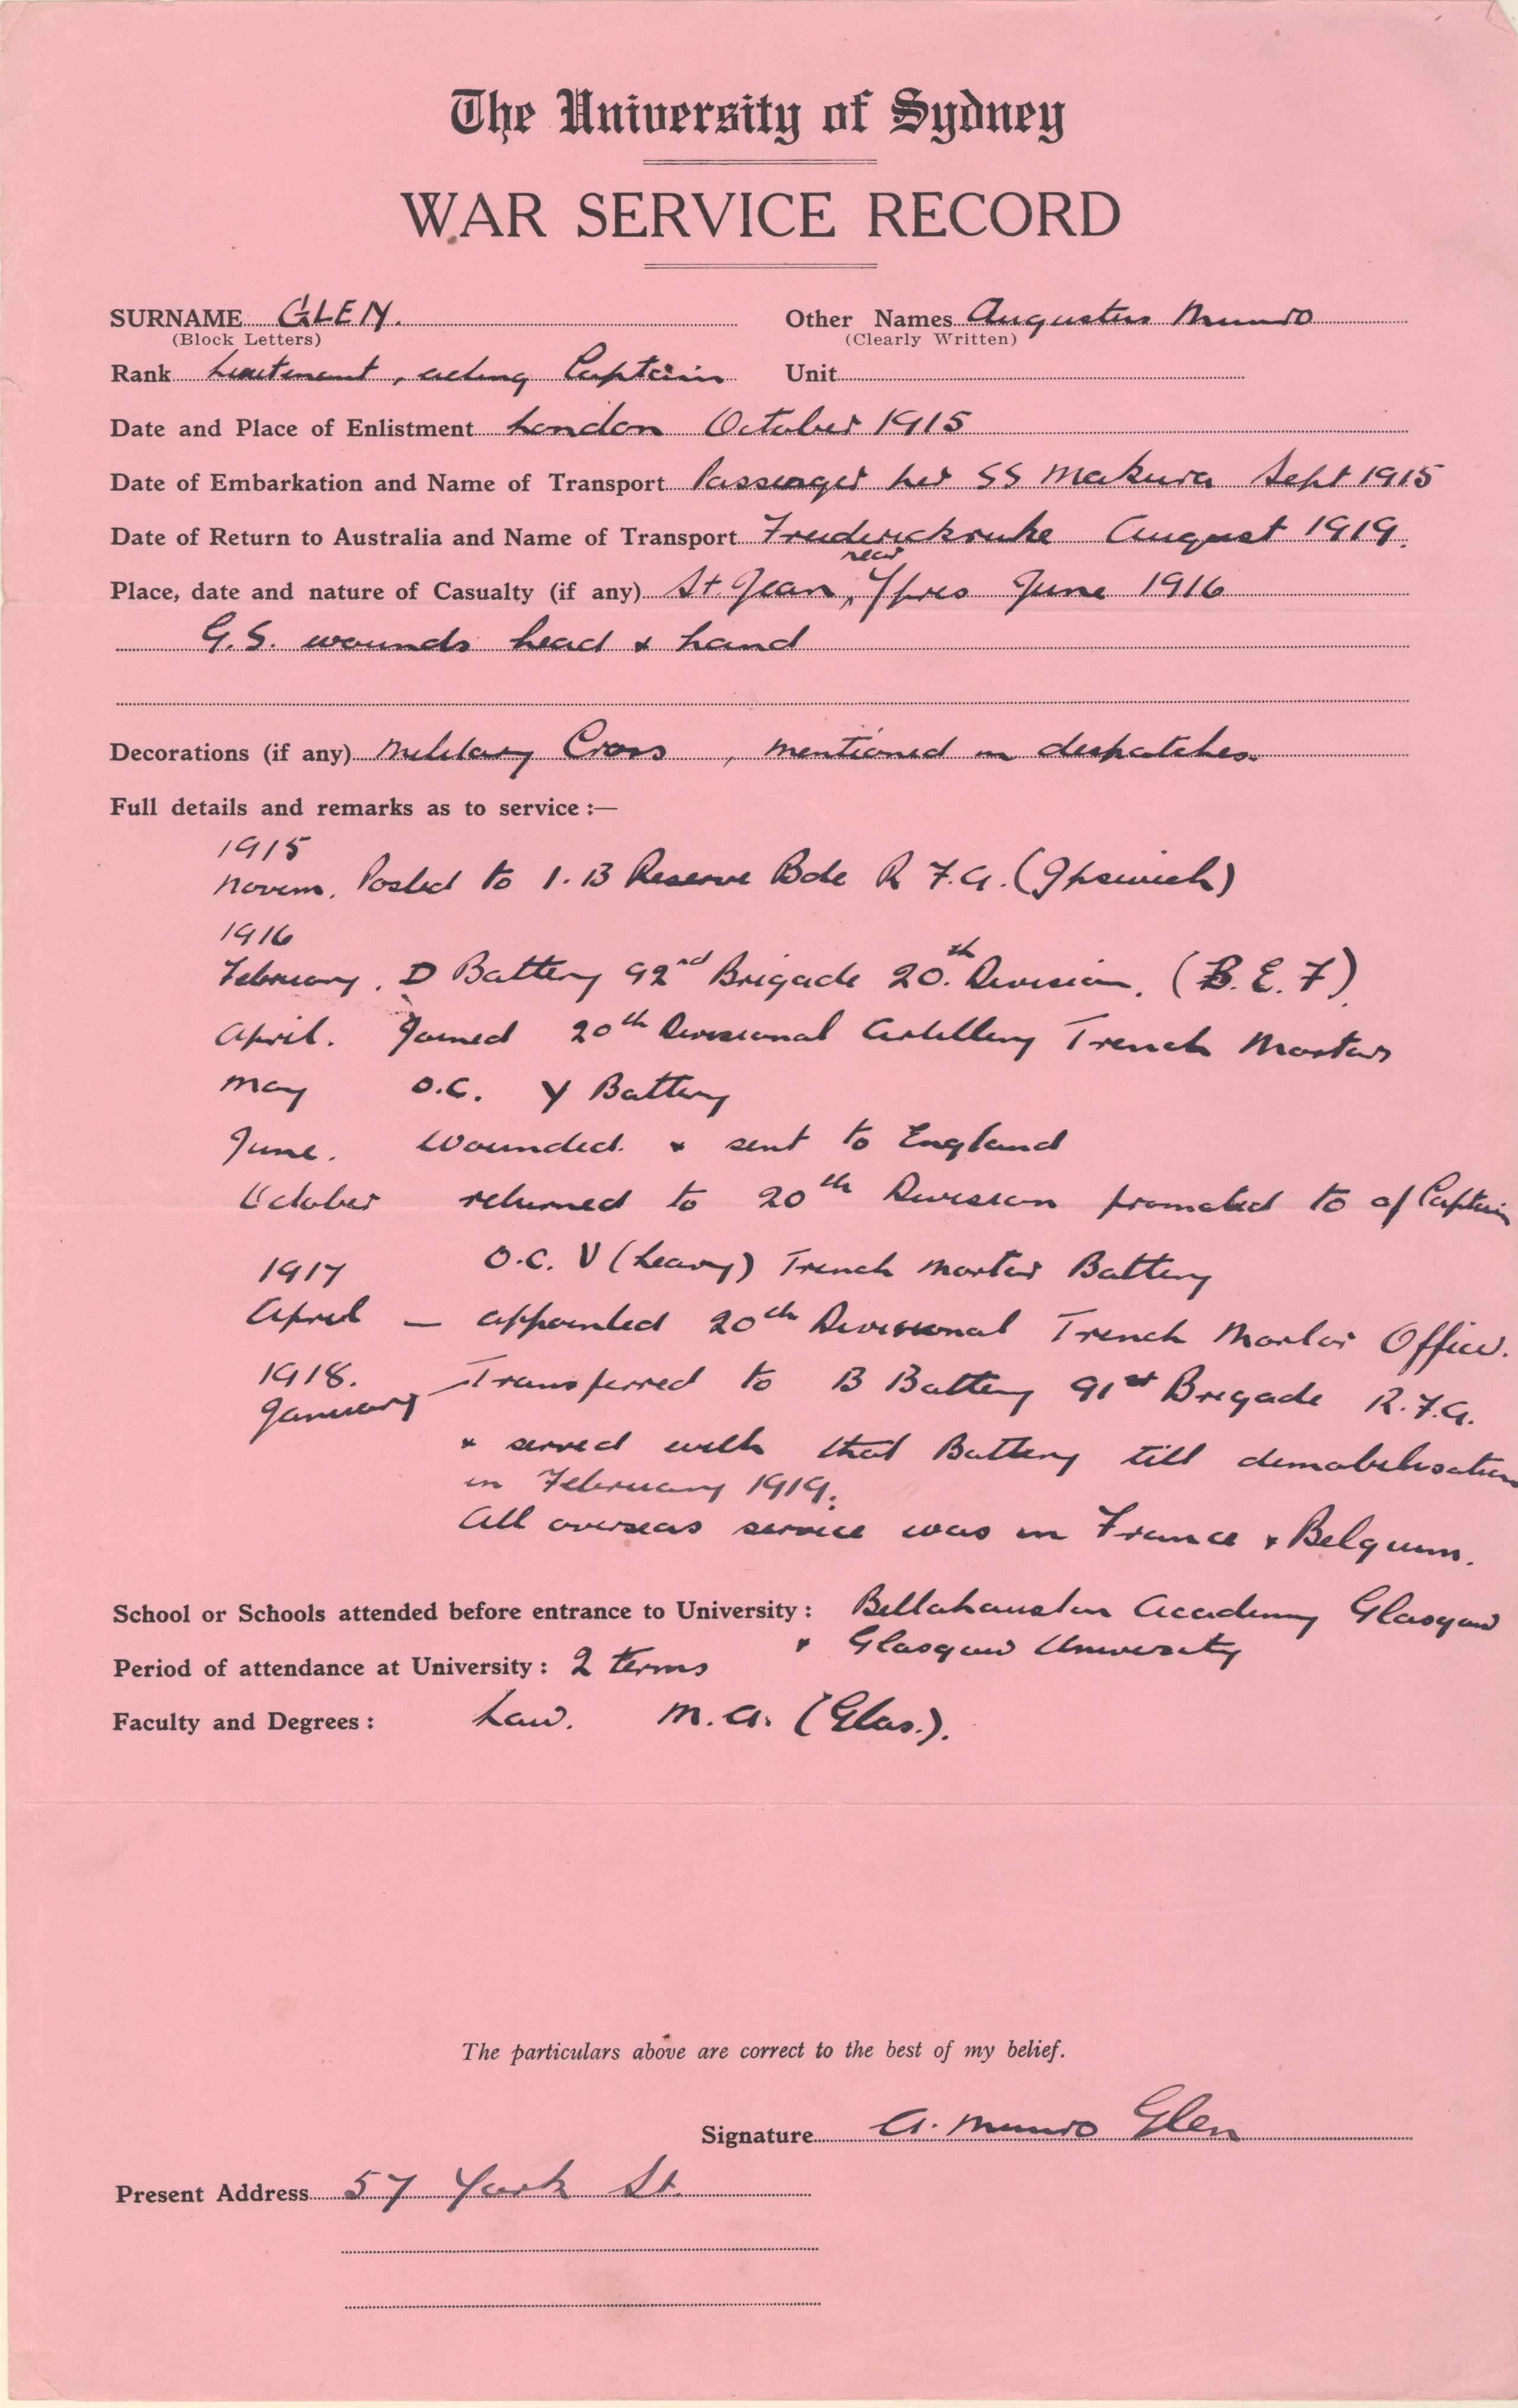 The University of Sydney
WAR SERVICE RECORD
SURNAME GLEN. Other Names Augustus Munro
(Block Letters) (Clearly Written)
Rank Lieutenant, acting Captain Unit
Date and Place of Enlistment London October 1915
Date of Embarkation and Name of Transport Passenger per SS Makura Sept 1915
Date of Return to Australia and Name of Transport Friedericksruhe August 1919.
Place, date and nature of Casualty (if any) St. Jean, near Ypres June 1916
G.S. wounds head & hand
Decorations (if any) Military Cross, mentioned in despatches.
Full details and remarks as to service :—
1915
Novem. Posted to 1.B Reserve Bde R.F.A. (Ipswich)
1916
February. D Battery 92nd Brigade 20.th Division. (B.E.F).
April. Joined 20th Divisional Artillery Trench Mortars
May O.C. Y Battery
June. Wounded & sent to England
October returned to 20th Division promoted to a/Captain
O.C. V (heavy) Trench Mortar Battery
1917
April — appointed 20th Divisional Trench Mortar Officer.
1918.
January — Transferred to B Battery 91st Brigade R.F.A.
& served with that Battery till demobilisation
in February 1919.
All overseas service was in France & Belgium.
School or Schools attended before entrance to University : Bellahouston Academy Glasgow
& Glasgow University
Period of attendance at University : 2 terms
Faculty and Degrees : Law. M.A. (Glas.).
The particulars above are correct to the best of my belief.
Signature A. Munro Glen
Present Address 57 York St.